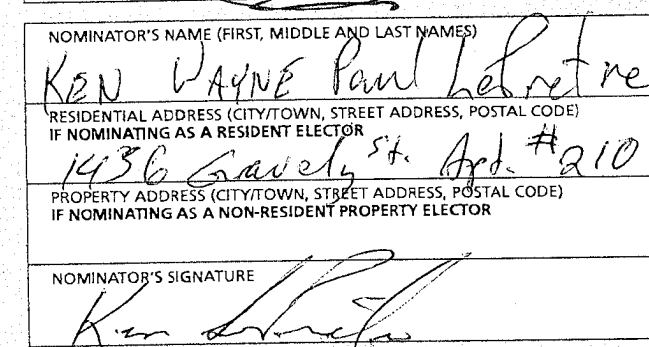 NOMINATOR'S NAME (FIRST, MIDDLE AND LAST NAMES)
KEN WAYNE Paul
RESIDENTIAL ADDRESS (CITY/TOWN, STREET ADDRESS, POSTAL CODE)
IF NOMINATING AS A RESIDENT ELECTOR
1436 Gravely St. Apt. #210
PROPERTY ADDRESS (CITY/TOWN, STREET ADDRESS, POSTAL CODE)
IF NOMINATING AS A NON-RESIDENT PROPERTY ELECTOR
NOMINATOR'S SIGNATURE
Ken